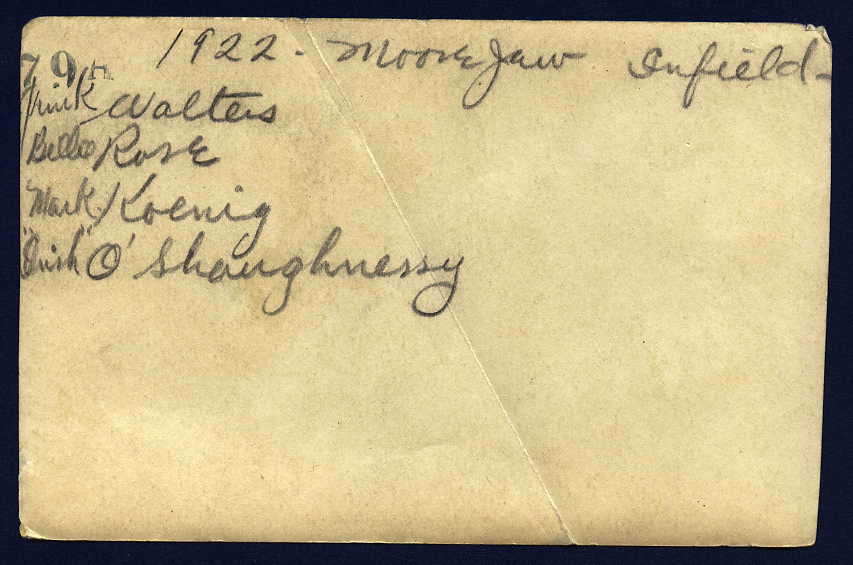 1922 - Moose Jaw Infield -
79
Walters
Billie Rose
Mark Koenig
"Irish" O'Shaughnessy